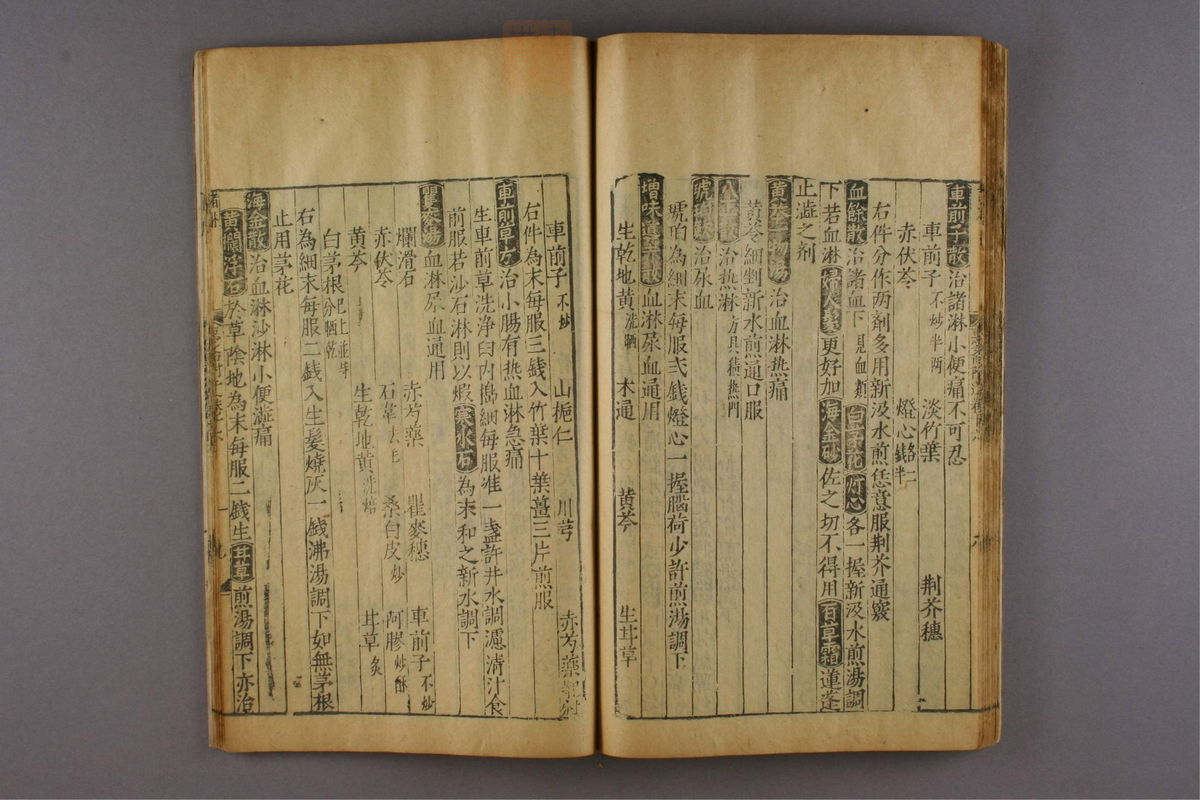 車前子散治諸淋小便痛不可忍
車前子不炒半两 淡竹葉 荆芥穗
赤伏苓 燈心各二錢半
右件分作两劑多用新汲水煎恁意服荆芥通竅
血餘散治諸血下見血類 白芙花 灯心各一握新汲水煎湯調
下若血淋婦人髪更好加海金砂佐之切不得用百草霜蓮蓬
止澁之剤
黄芩一物湯治血淋热痛
黄芩細剉新水煎通口服
八正散治热淋方具積热門
琥珀散治尿血
琥珀為細末每服弍錢燈心一握腦荷少許煎湯調下
增味導赤散血淋尿血通用
生乾地黄洗晒 木通 黄芩 生甘草
車前子不炒 山梔仁 川芎 赤芍藥
右件為末每服三錢入竹葉十葉薑三片煎服
車前草方治小腸有热血淋急痛
生車前草洗浄臼内擣細每服准一盞許井水調濾清汁食
前服若沙石淋則以煆寒水石為末和之新水調下
瞿麥湯血淋尿血通用
赤芍藥 瞿麥穗 車前子不炒
爛滑石 石韋去毛 桑白皮炒 阿膠炒酥
赤伏苓 生乾地黄洗焙 甘草炙
黄芩
白茅根已上並等分晒乾
右為細末每服二錢入生髪燒灰一錢沸湯調下如無茅根
止用茅花
海金散治血淋沙淋小便澁痛
黄爛浮石於草陰地為末每服二錢生甘草煎湯調下亦治